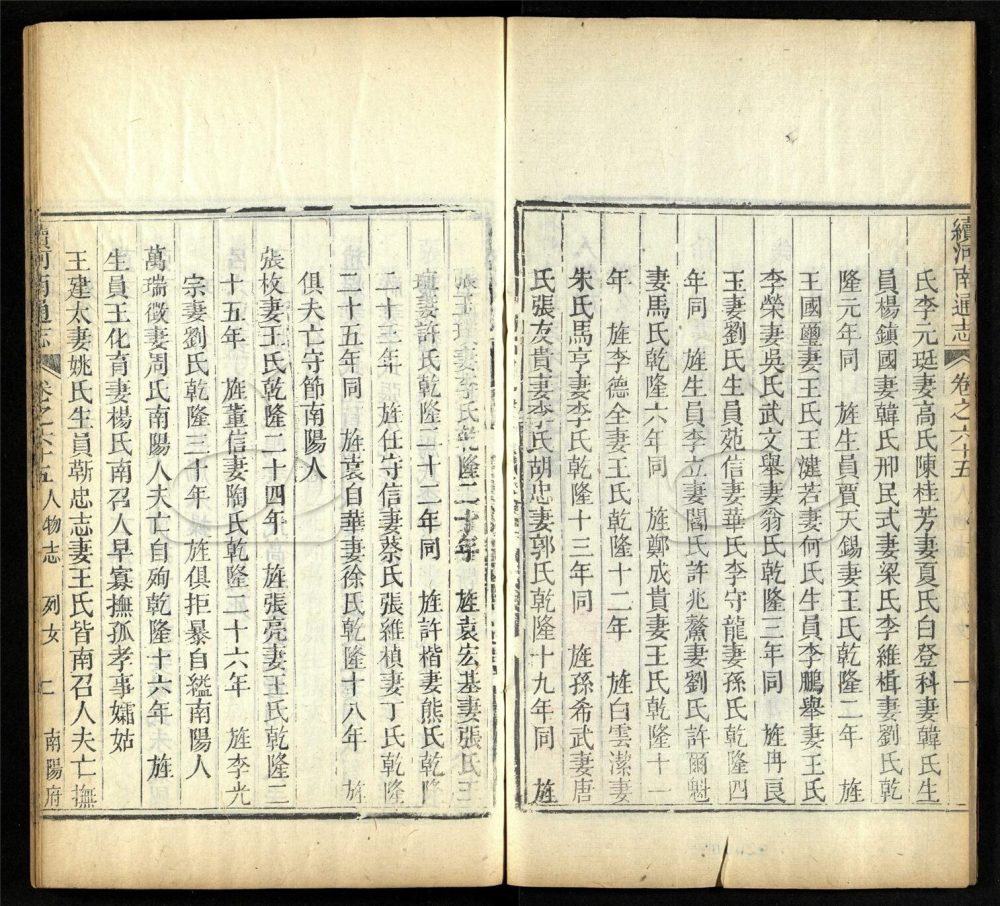 續河南通志 卷之六十五 一
氏李元珽妻高氏陳桂芳妻夏氏白登科妻韓氏生
員楊鎮國妻韓氏邢民式妻梁氏李維楫妻劉氏乾
隆元年同 旌生員賈天錫妻王氏乾隆二年 旌
王國璽妻王氏王漣若妻何氏生員李鵬舉妻王氏
李榮妻吳氏武文舉妻翁氏乾隆三年同 旌冉良
玉妻劉氏生員茹信妻華氏李守龍妻孫氏乾隆四
年同 旌生員李立妻閻氏許兆鰲妻劉氏許爾魁
妻馬氏乾隆六年同 旌鄭成貴妻王氏乾隆十一
年 旌李德全妻王氏乾隆十二年 旌白雲潔妻
朱氏馬亨妻李氏乾隆十三年同 旌孫希武妻唐
氏張友貴妻李氏胡忠妻郭氏乾隆十九年同 旌
玉 妻李氏乾隆二十年 旌袁宏基妻張氏王
妻許氏乾隆二十二年同 旌許楷妻熊氏乾隆
二十三年 旌任守信妻蔡氏張維楨妻丁氏乾隆
二十五年同 旌袁自華妻徐氏乾隆十八年 旌
俱夫亡守節南陽人
張枚妻王氏乾隆二十四年 旌張亮妻王氏乾隆二
十五年 旌董信妻陶氏乾隆二十六年 旌李光
宗妻劉氏乾隆三十年 旌俱拒暴自縊南陽人
萬瑞徵妻周氏南陽人夫亡自殉乾隆十六年 旌
生員王化育妻楊氏南召人早寡撫孤孝事孀姑
王建太妻姚氏生員靳忠志妻王氏皆南召人夫亡撫
續河南通志 卷之六十五 人物志 列女 二 南陽府